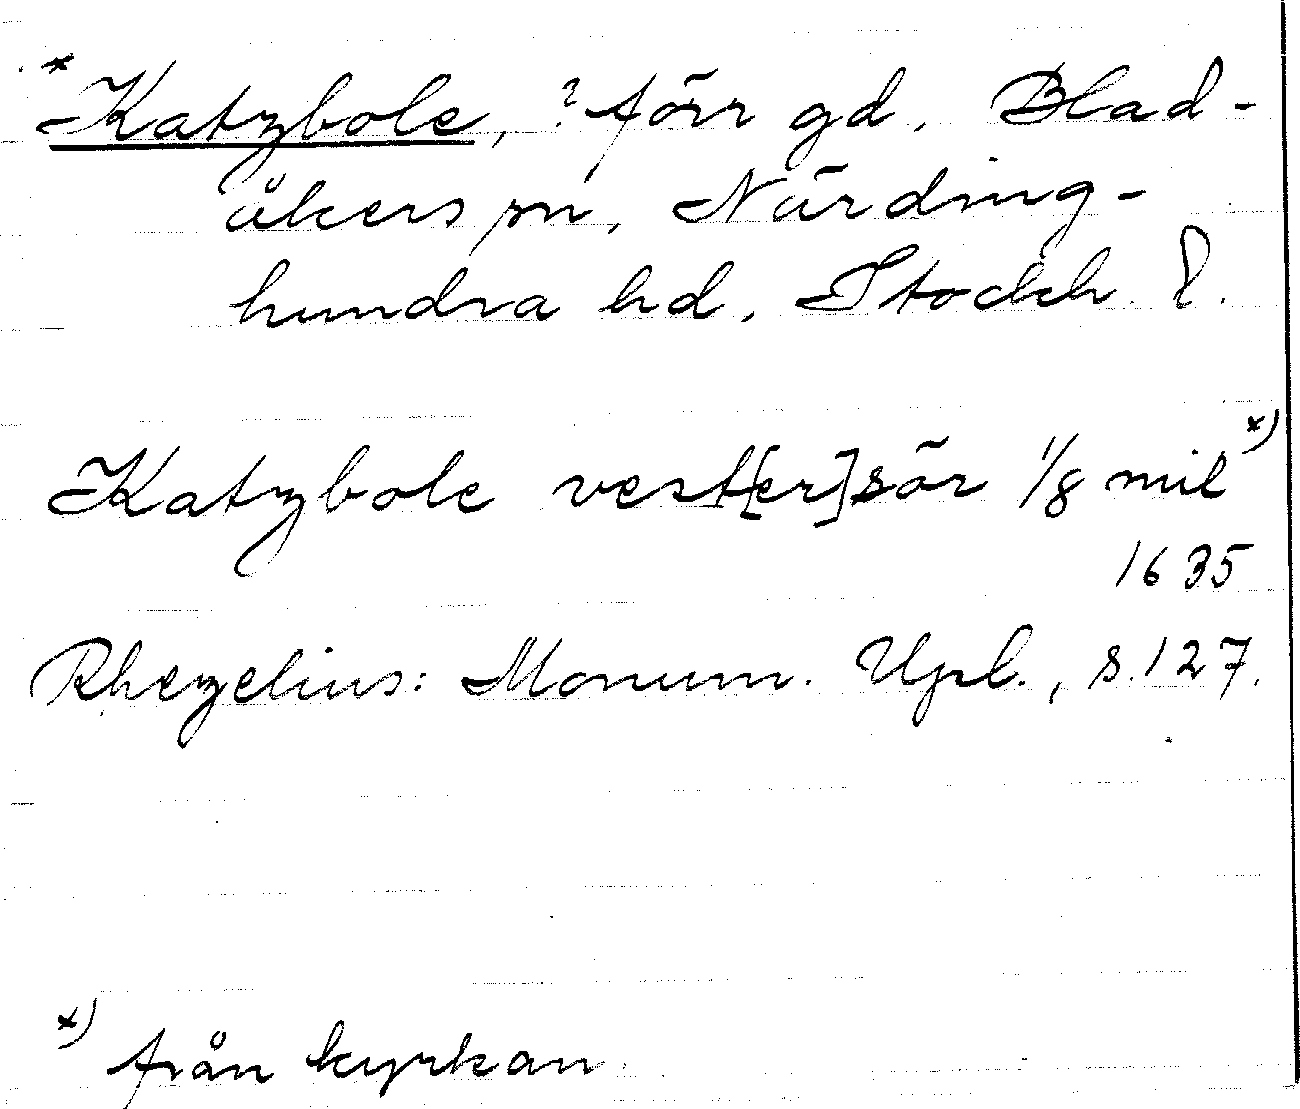 *Katzbole, ? förr gd. Blad-
åkers sn, Närding-
hundra hd, Stockh. l.
Katzbole vest[er]sör 1/8 mil x)
1635
Rhezelius: Monum. Upl., s. 127.
x) från kyrkan